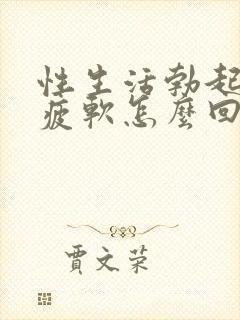 性生活勃起
疲軟怎麼回
賈文荣